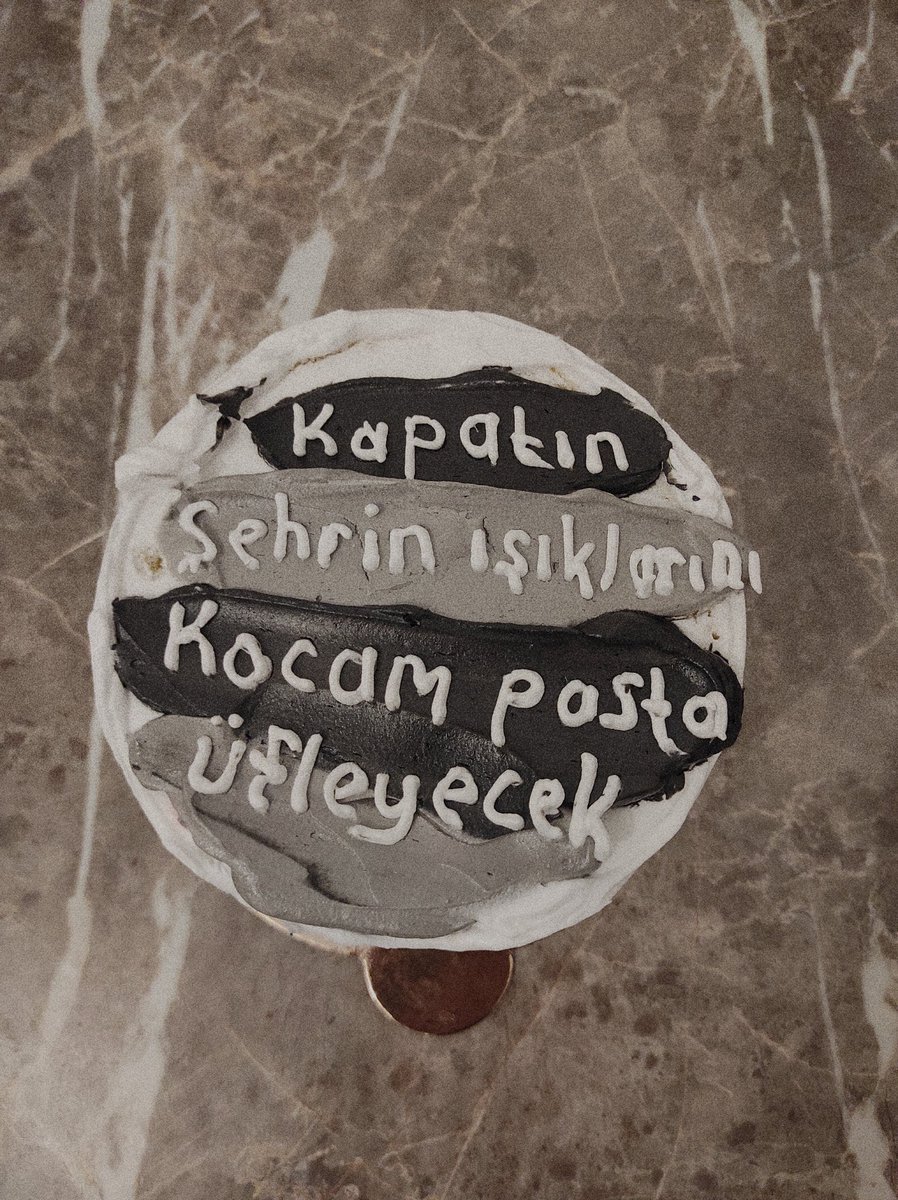 Kapatın
Şehrin ışıklarını
Kocam pasta
üfleyecek